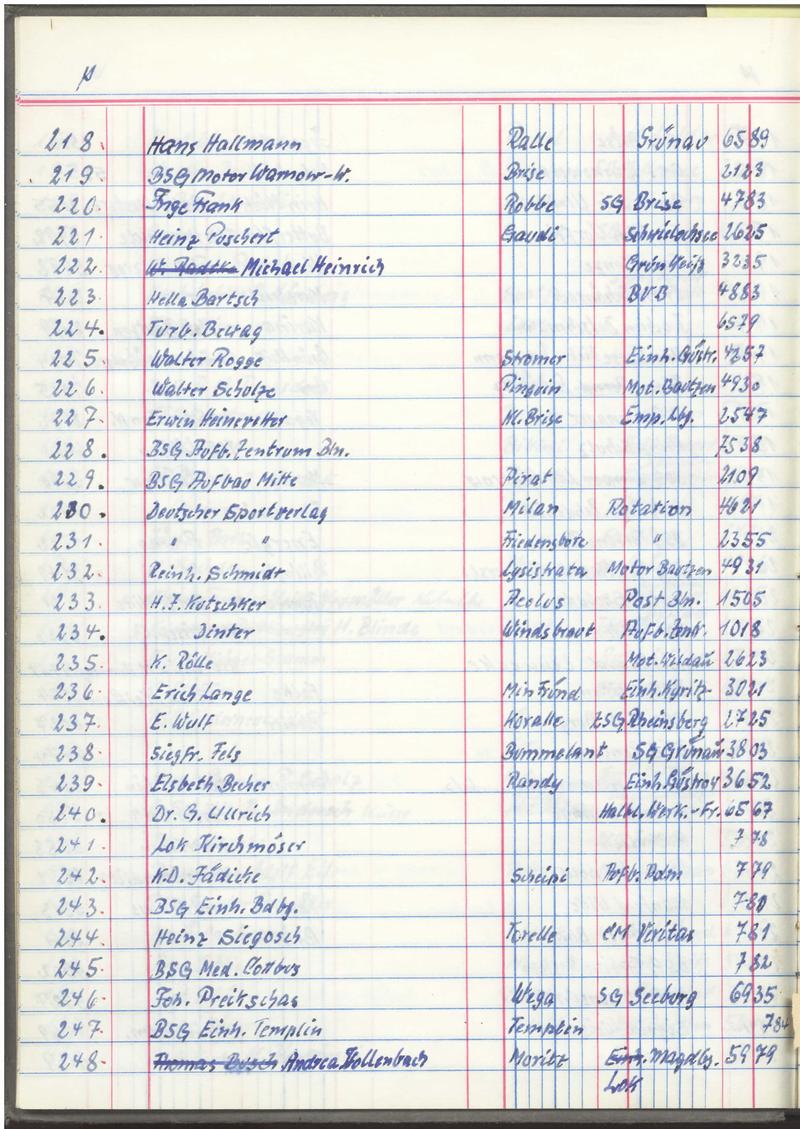 P
218. Hans Hallmann Ralle Grünau 6589
219. BSG Motor Warnow-W. Brise 2123
220. Inge Frank Robbe SG Brise 4783
221. Heinz Puschert Gaudi Schwielochsee 2625
222. W. Radtke Michael Heinrich Grün Weiß 3235
223. Hella Bartsch BVB 4883
224. Turb. Bewag 6579
225. Walter Rogge Stromer Einh. Güstr. 4257
226. Walter Scholze Pinguin Mot. Bautzen 4930
227. Erwin Heineretter Kl. Brise Emp. Lbg. 2547
228. BSG Aufb. Zentrum Bln. 7538
229. BSG Aufbau Mitte Pirat 2109
230. Deutscher Sportverlag Milan Rotation 4621
231. " " Friedensbote " 2355
232. Reinh. Schmidt Lysistrata Motor Bautzen 4931
233. H.J. Kutschker Aeolus Post Bln. 1505
234. Dinter Windsbraut Aufb. Zentr. 1018
235. K. Rölle Mot. Wildau 2623
236. Erich Lange Min Fründ Einh. Kyritz 3021
237. E. Wulf Koralle ZSG Rheinsberg 2725
238. Siegfr. Fels Bummelant SG Grünau 3803
239. Elsbeth Becher Randy Einh. Güstrow 3652
240. Dr. G. Ullrich Halbl. Werk.-Fr. 6567
241. Lok Kirchmöser 778
242. K.D. Jädicke Scheipi Aufb. Pdm 779
243. BSG Einh. Bdbg. 780
244. Heinz Siegosch Forelle CM Veritas 781
245. BSG Med. Cottbus 782
246. Joh. Preikschas Wega SG Seeburg 6935
247. BSG Einh. Templin Templin 784
248. Thomas Busch Andrea Wollenbach Moritz Einh. Magdbg. 5979
Lok